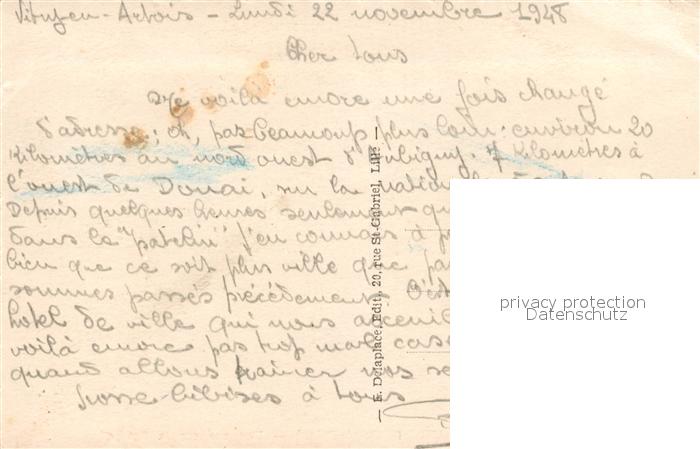 Vitry-en-Artois - Lundi 22 novembre 1948
Cher tous
Me voilà encore une fois changé
d'adresse; oh, pas beaucoup plus loin: environ 20
kilomètres au nord ouest d'Aubigny. 7 kilomètres à
l'ouest de Douai, sur la
Depuis quelques heures seulement
dans le "patelin" j'en connais à
bien que ce soit plus ville que
sommes passés précédemment. C'est
hotel de ville qui nous
voilà encore pas trop mal
quand allons
Grosse bibises à tous
— E. Delaplace, Edit., 20, rue St-Gabriel, Lille —
privacy protection
Datenschutz